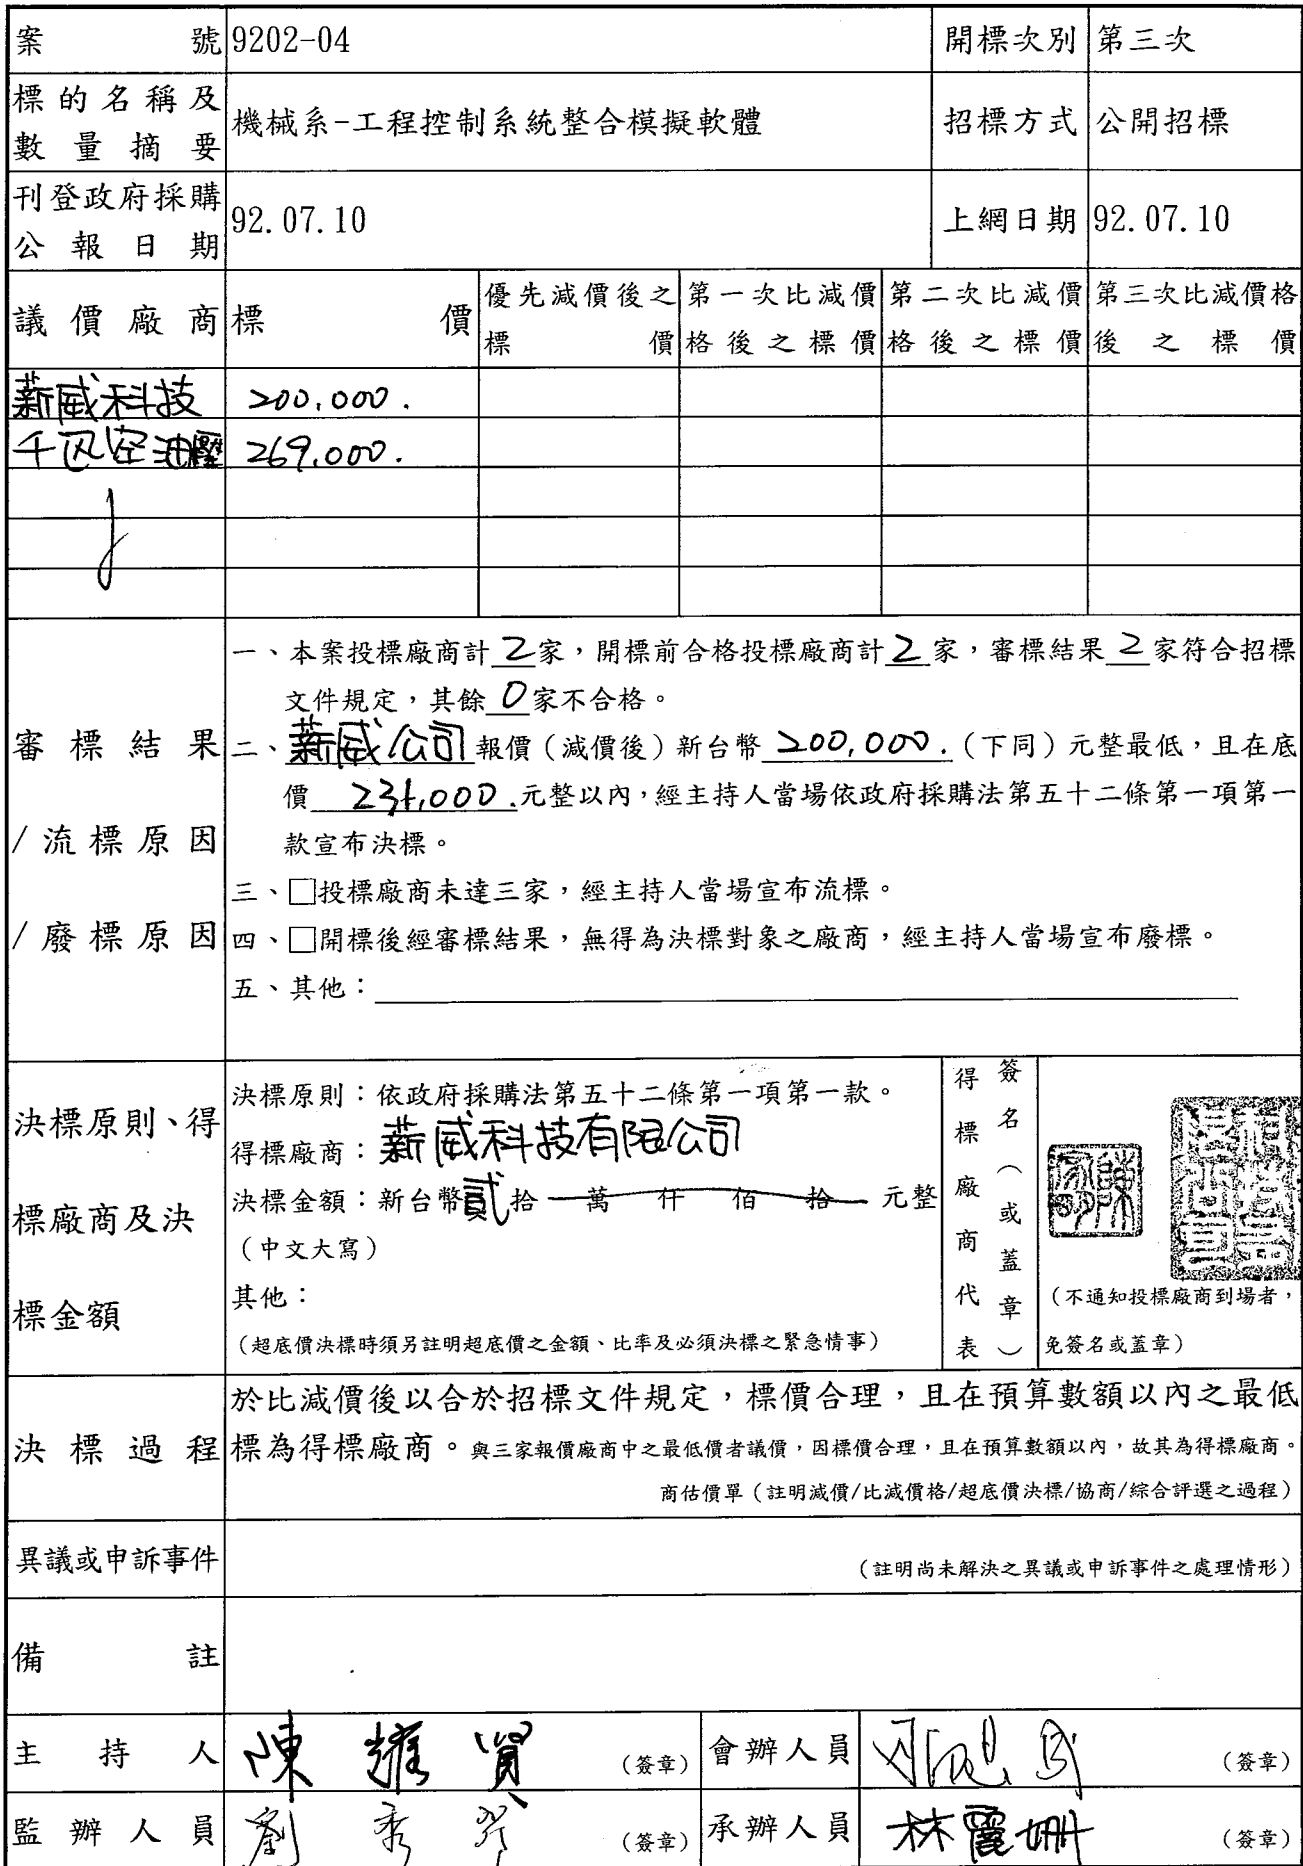 案號 9202-04 開標次別 第三次
標的名稱及
數量摘要 機械系-工程控制系統整合模擬軟體 招標方式 公開招標
刊登政府採購
公報日期 92.07.10 上網日期 92.07.10
議價廠商 標價 優先減價後之標價 第一次比減價格後之標價 第二次比減價格後之標價 第三次比減價格後之標價
薪威科技 200,000.
千 空油壓 269,000.
審標結果
/流標原因
/廢標原因
一、本案投標廠商計2家,開標前合格投標廠商計2家,審標結果2家符合招標
文件規定,其餘0家不合格。
二、薪威公司報價(減價後)新台幣200,000.(下同)元整最低,且在底
價 元整以內,經主持人當場依政府採購法第五十二條第一項第一
款宣布決標。
三、□投標廠商未達三家,經主持人當場宣布流標。
四、□開標後經審標結果,無得為決標對象之廠商,經主持人當場宣布廢標。
五、其他:
決標原則、得
標廠商及決
標金額
決標原則:依政府採購法第五十二條第一項第一款。
得標廠商:薪威科技有限公司
決標金額:新台幣貳拾萬仟佰拾元整
(中文大寫)
其他:
(超底價決標時須另註明超底價之金額、比率及必須決標之緊急情事)
得標廠商代表
簽名(或蓋章)
(不通知投標廠商到場者,
免簽名或蓋章)
決標過程
於比減價後以合於招標文件規定,標價合理,且在預算數額以內之最低
標為得標廠商。與三家報價廠商中之最低價者議價,因標價合理,且在預算數額以內,故其為得標廠商。
商估價單(註明減價/比減價格/超底價決標/協商/綜合評選之過程)
異議或申訴事件 (註明尚未解決之異議或申訴事件之處理情形)
備註
主持人 陳耀賢 (簽章) 會辦人員 (簽章)
監辦人員 劉秀 (簽章) 承辦人員 林麗姍 (簽章)